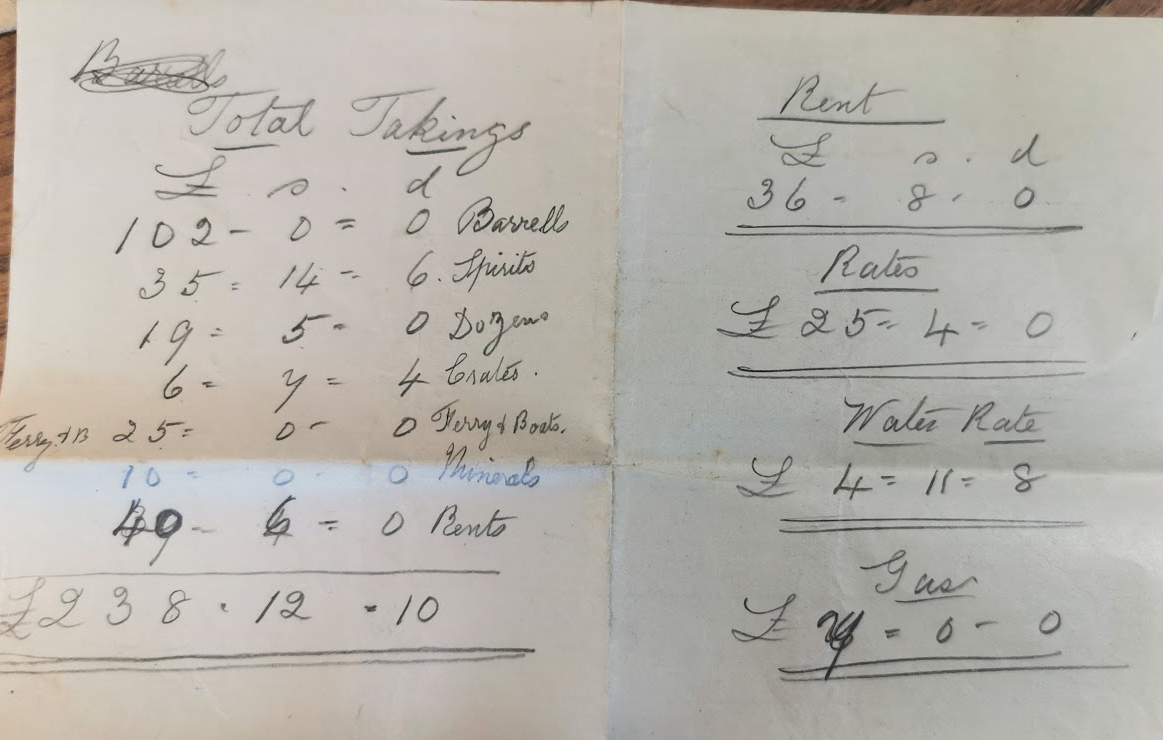 Total Takings
£ s. d
102 - 0 = 0 Barrells
35 = 14 = 6. Spirits
19 = 5 = 0 Dozens
6 = 7 = 4 Crates.
Ferry & B 25 = 0 - 0 Ferry & Boats.
10 = 0 - 0 Minerals
40 - 6 = 0 Rents
£238 . 12 - 10
Rent
£ s. d
36 - 8 - 0
Rates
£ 25 = 4 = 0
Water Rate
£ 4 = 11 = 8
Gas
£ = 0 - 0